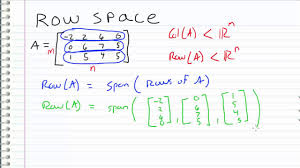 Row Space
A = [-2 2 6 0
0 6 7 5
1 5 4 5]
m
n
Col(A) < ℝ^m
Row(A) < ℝ^n
Row(A) = span ( Rows of A )
Row(A) = span ( [-2 2 6 0], [0 6 7 5], [1 5 4 5] )